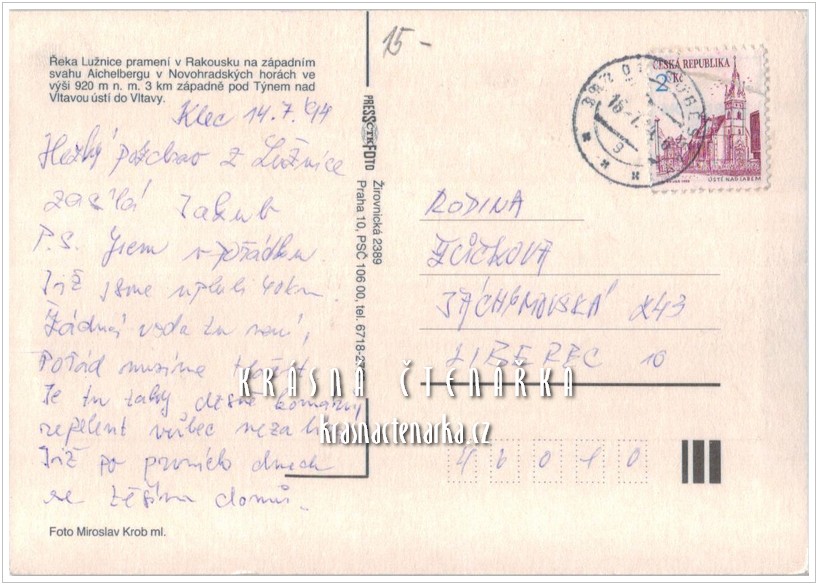 15-
Řeka Lužnice pramení v Rakousku na západním
svahu Aichelbergu v Novohradských horách ve
výši 920 m n. m. 3 km západně pod Týnem nad
Vltavou ústí do Vltavy.
Klec 14.7.'94
Hezký pozdrav z Lužnice
zasílá Jakub
P.S. Jsem v pořádku.
Již jsme upluli 40km.
Žádná voda tu není,
Pořád musíme
Je tu taky děsně komárů,
repelent vůbec nezabírá
Již po prvních dnech
se těším domů.
Foto Miroslav Krob ml.
PRESS ČTK FOTO
Žirovnická 2389
Praha 10, PSČ 106 00, tel. 6718-23
ČESKÁ REPUBLIKA
2 Kč
ÚSTÍ NAD LABEM
RODINA
JÁCHYMOVSKÁ 243
LIBEREC 10
46010
KRÁSNÁ ČTENÁŘKA
krasnactenarka.cz